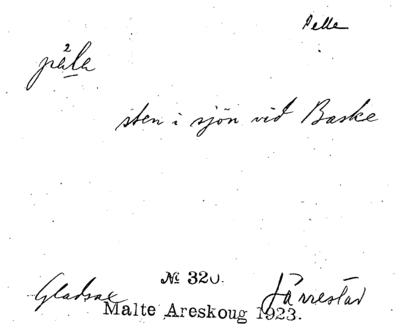 Pelle
påla
sten i sjön vid Baske
№ 320.
Gladsax Järrestad
Malte Areskoug 1923.